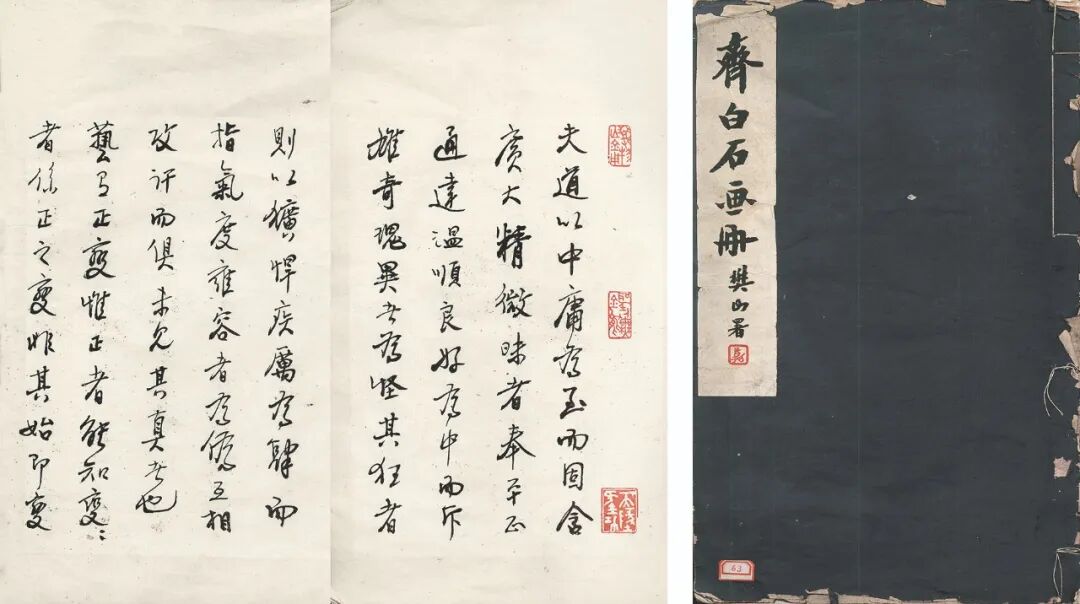 齊白石画册
樊山署
63
夫道以中庸為至而固含
廣大精微昧者奉平正
通達溫順良好為中而斥
雄奇瑰異者為怪其狂者
則以獷悍疾厲為肆而
指氣度雍容者為偽互相
攻訐而俱未見其真者也
藝有正變惟正者能知變〻
者係正之變非其始即變